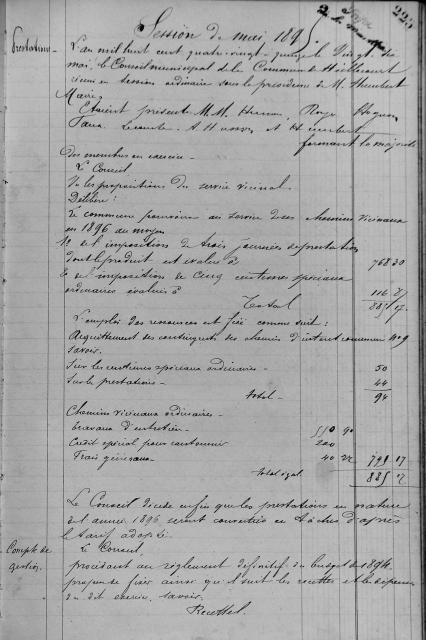 225
Session de mai 1895.
Prestations - L'an mil huit cent quatre-vingt-quinze le vingt
mai, le Conseil municipal de la Commune de
réuni en session ordinaire sous la présidence de M. Humbert
Maire,
Etaient présents M.M. Roye
Lecomte. A. et Humbert
formant la majorité
des membres en exercice -
Le Conseil
Vu les propositions du service vicinal.
Délibère :
La commune pourvoira au service de ses chemins vicinaux
en 1896 au moyen
1º et imposition de trois journées de prestation
dont le produit est évalué à 768 30
2 et imposition de cinq centimes spéciaux
ordinaires évalués à 116 87
Total 885 17.
L'emploi des ressources est fixé comme suit :
Acquittement des contingents des chemins d'intérêt commun nº 9
savoir.
Sur les centimes spéciaux ordinaires - 50
Sur les prestations - 44
total - 94
Chemins vicinaux ordinaires -
travaux d'entretien - 550 90
Crédit spécial pour cantonnier 200
Frais généraux - 40 791 17
total égal 885
Le Conseil décide enfin que les prestations en nature
de l'année 1896 seront converties en tâches d'après
le tarif adopté.
Compte de gestion. Le Conseil,
procédant au règlement définitif du budget de 1894
propose de fixer ainsi qu'il suit les recettes et les dépenses
du dit exercice, savoir.
Recettes.